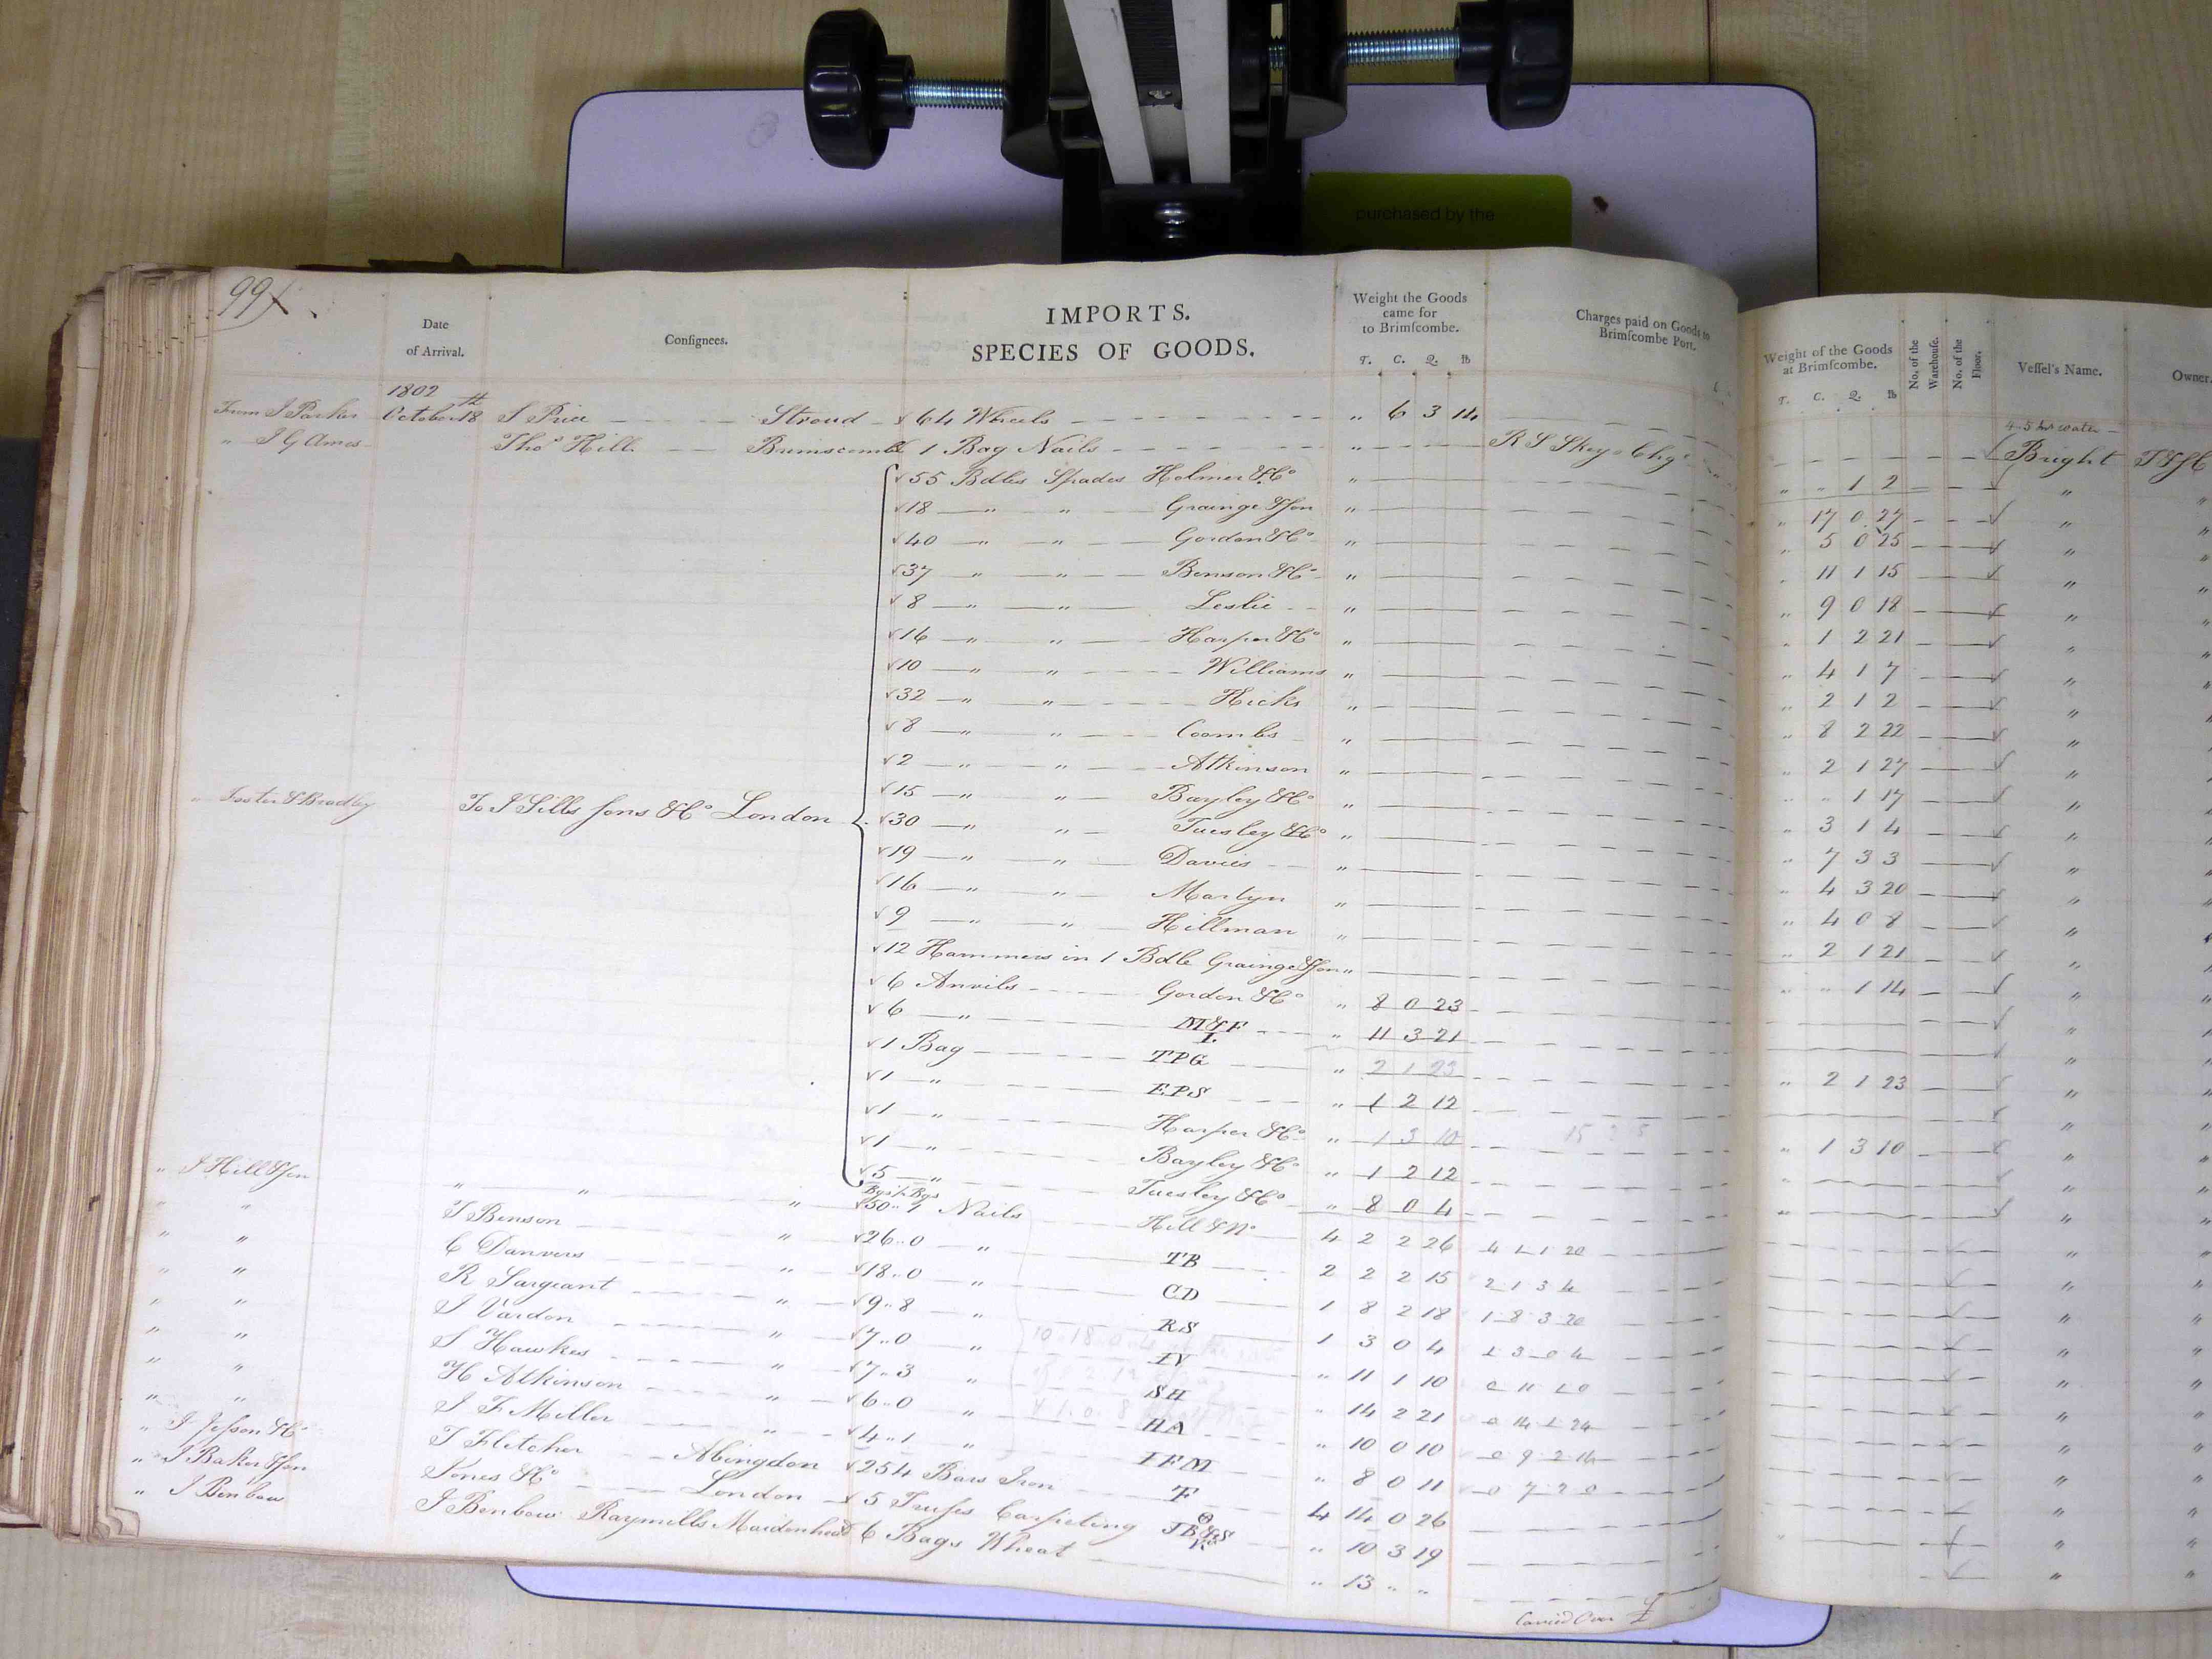 purchased by the
99
Date of Arrival.
Consignees.
IMPORTS.
SPECIES OF GOODS.
Weight the Goods came for to Brimscombe.
T. C. Q. lb
Charges paid on Goods to Brimscombe Port.
Weight of the Goods at Brimscombe.
T. C. Q. lb
No. of the Warehouse.
No. of the Floor.
Vessel's Name.
Owner
1802
From J Parker October 18th S Price Stroud 64 Wheels " 6 3 14 Bright
" J G Ames Thos Hill Brimscomb 1 Bag Nails " R S Skey Chgs " " 1 2 "
55 Bdles Spades Holmer & Co " " 17 0 27 "
18 " " Grainge & Son " " 5 0 25 "
40 " " Gordon & Co " " 11 1 15 "
37 " " Benson & Co " " 9 0 18 "
8 " " Leslie " " 1 2 21 "
16 " " Harper & Co " " 4 1 7 "
10 " " Williams " " 2 1 2 "
32 " " Hicks " " 8 2 22 "
8 " " Coombs " " 2 1 27 "
2 " " Atkinson " " " 1 17 "
15 " " Bayley & Co " " 3 1 4 "
" Foster & Bradley To J Sills Sons & Co London 30 " " Tuesley & Co " " 7 3 3 "
19 " " Davies " " 4 3 20 "
16 " " Martyn " " 4 0 8 "
9 " " Hillman " " 2 1 21 "
12 Hammers in 1 Bdle Grainge & Son " " " 1 14 "
6 Anvils Gordon & Co " 8 0 23 "
6 " M&F I. " 11 3 21 "
1 Bag TPG " 2 1 23 " 2 1 23 "
1 " EPS " 1 2 12 "
1 " Harper & Co " 1 3 10 " 1 3 10 "
1 " Bayley & Co " 1 2 12 "
5 " Tuesley & Co " 8 0 4 "
Bgs ½ Bgs
" J Hill & Son " " " 50 " 7 Nails Hill & Co 4 2 2 26 4 2 1 20 "
" " T Benson " 26 " 0 " TB 2 2 2 15 2 1 3 4 "
" " C Danvers " 18 " 0 " CD 1 8 2 18 1 8 3 20 "
" " R Sargeant " 9 " 8 " RS 1 3 0 4 1 3 0 4 "
" " J Vardon " 7 " 0 " IV " 11 1 10 "
" " S Hawkes " 7 " 3 " SH " 14 2 21 "
" " H Atkinson " 6 " 0 " HA " 10 0 10 0 9 2 14 "
" " J F Miller " 4 " 1 " IFM " 8 0 11 0 7 2 0 "
" J Jesson & Co T Fletcher Abingdon 254 Bars Iron F 4 14 0 26 "
" J Baker & Son Jones & Co London 5 Trusses Carpeting JB&S " 10 3 19 "
" J Benbow J Benbow Raymills Maidenhead 6 Bags Wheat " 13 " " "
Carried Over